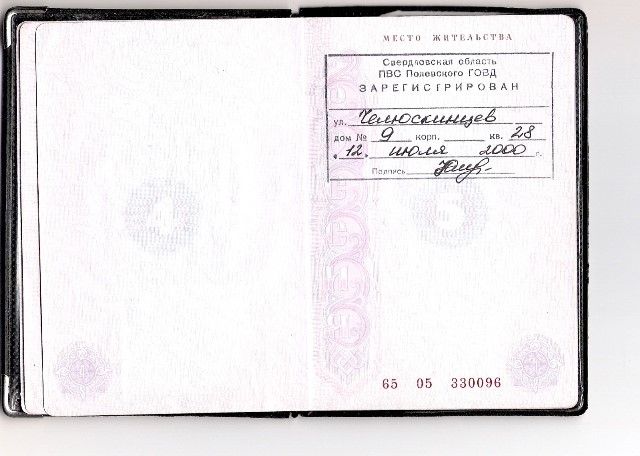 МЕСТО ЖИТЕЛЬСТВА
Свердловская область
ПВС Полевского ГОВД
ЗАРЕГИСТРИРОВАН
ул. Челюскинцев
дом № 9 корп. кв. 28
"12" июля 2000 г.
Подпись
4 5
65 05 330096